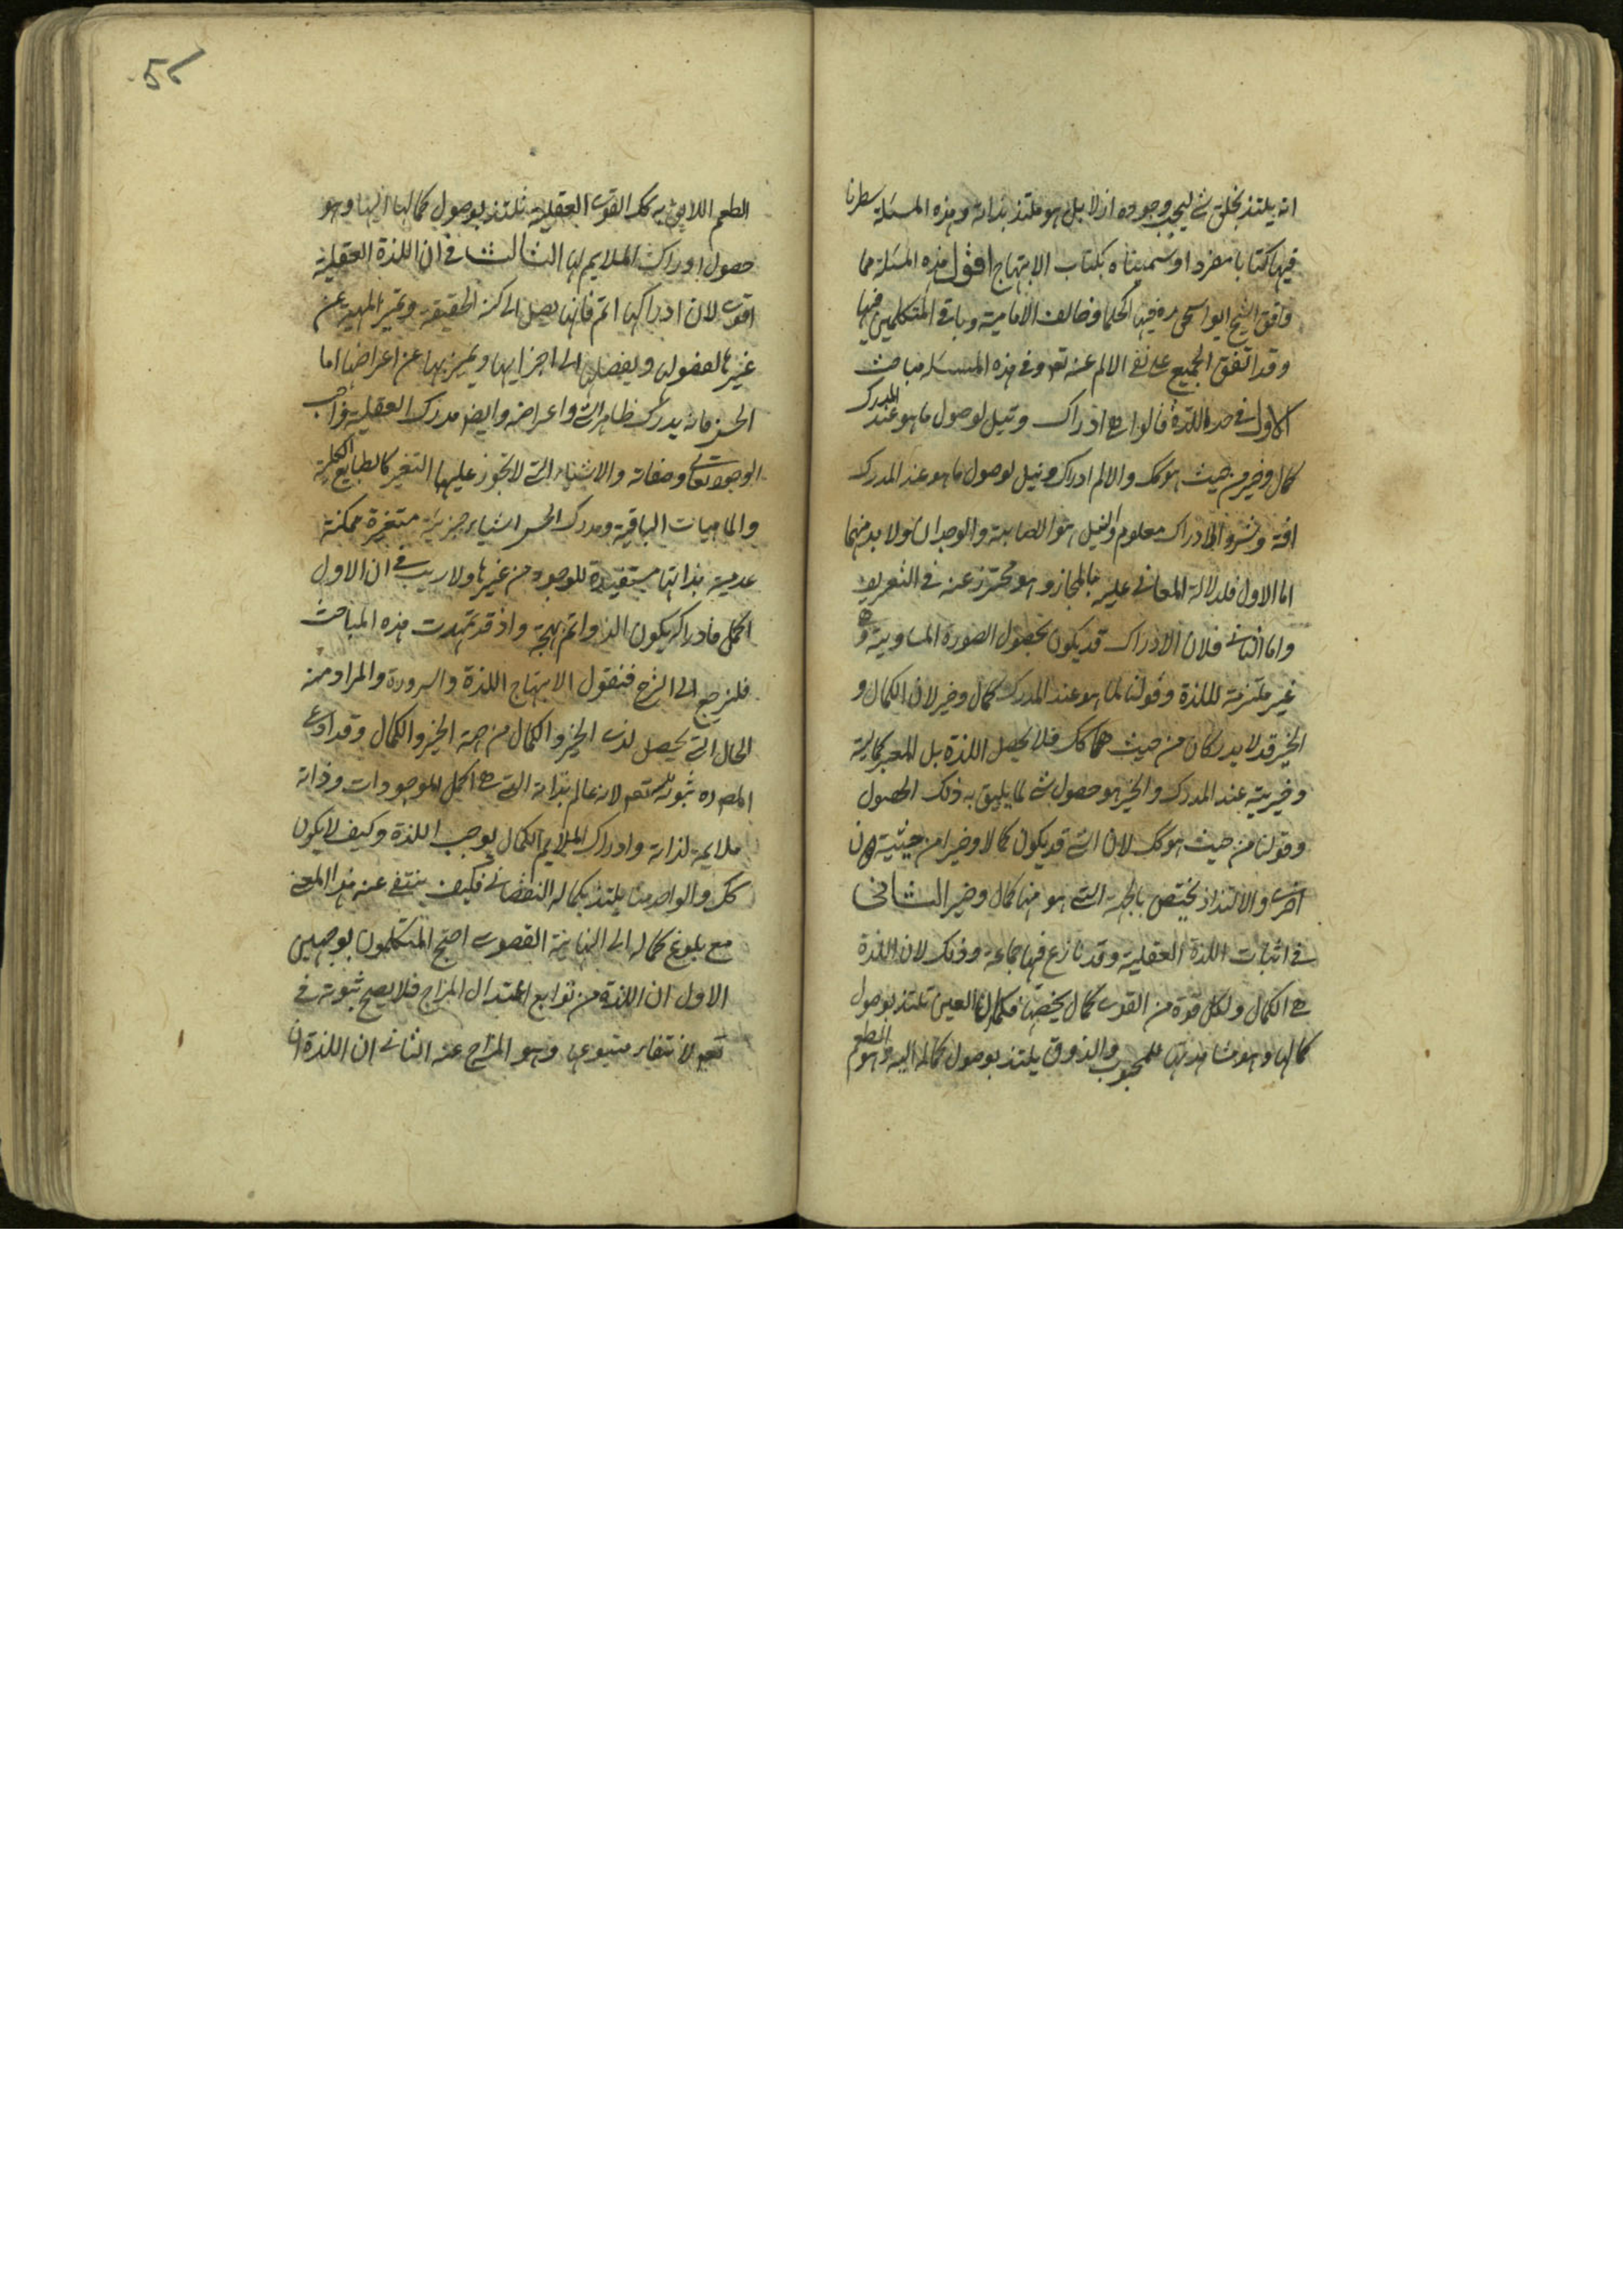 انه يلتذ بخلق شي ليجب وجوده ازلا بل هو ملتذ بذاته وهذه المسئلة سطرنا
فيها كتابا مفردا وسميناه بكتاب الابتهاج اقول هذه المسئلة مما
وافق الشيخ ابو اسحق ره فيها الحكما وخالف الامامية وباقي المتكلمين فيها
وقد اتفق الجميع على نفي الالم عنه تعه وفي هذه المسئله مباحث
الاول في حد اللذة قالوا هي ادراك ونيل لوصول ما هو عند المدرك
كمال وخير من حيث هو كك والالم ادراك ونيل لوصول ما هو عند المدرك
افة وشر والادراك معلوم والنيل هو الاصابة والوجدان ولا بد منهما
اما الاول فلدلالة الثاني عليه بالمجاز وهو محترز عنه في التعريف
واما الثاني فلان الادراك قد يكون بحصول الصورة المساوية وهي
غير ملتزمة لللذة وقولنا لما هو عند المدرك كمال وخير لان الكمال و
الخير قد لا يدركان من حيث هما كك فلا يحصل اللذة بل المعتبر كمالية
وخيرية عند المدرك والخير هو حصول شي لما يليق به ذلك الحصول
وقولنا من حيث هو كك لان الشي قد يكون كمالا وخيرا من حيثية دون
اخرى والالتذاذ يختص بالجهة التي هو منها كمال وخير الثاني
في اثبات اللذة العقلية وقد نازع فيها جماعة وذلك لان اللذة
هي الكمال ولكل قوة من القوى كمال يخصها فكما ان العين تلتذ بوصول
كمالها وهو مشاهدتها للمحبوب والذوق يلتذ بوصول كماله اليه وهو الطعم
5
الطعم اللايق به كك القوى العقلية تلتذ بوصول كمالها اليها وهو
حصول ادراك الملايم لها الثالث في ان اللذة العقلية
اقوى لان ادراكها اتم فانها يصل الى كنه الحقيقة وتميز المهية عن
غيرها بالفصول ويفصلها الى اجزايها ويميز بها عن اعراضها اما
الحس فانه يدرك ظاهر الشي واعراضه وايضا مدرك العقلية واجب
الوجود تعالى وصفاته والاشياء التي لا يجوز عليها التغير كالطبايع الكلية
والماهيات الباقية ومدرك الحس اشياء جزيئة متغيرة ممكنة
عدمية بذاتها مستفيدة للوجود من غيرها ولا ريب في ان الاول
اكمل فادراكه يكون الذ واتم بهجة واذ قد تمهدت هذه المباحث
فلنرجع الى الشرح فنقول الابتهاج اللذة والسرورة والمراد منه
الحال التي يحصل لذى الخير والكمال من جهة الخير والكمال وقد ادعى
المص ره ثبوته لله تعه لانه عالم بذاته التي هي اكمل الموجودات وذاته
ملايمة لذاته وادراك الملايم الكمال يوجب اللذة وكيف لا يكون
كك والواحد منا يلتذ بكماله النقصاني فكيف ينتفي عنه هذا المعنى
مع بلوغ كماله الى النهاية القصوى احتج المتكلمون بوجهين
الاول ان اللذة من توابع اعتدال المزاج فلا يصح ثبوته في
تعه لانتفاء متبوعها وهو المزاج عنه الثاني ان اللذة ان